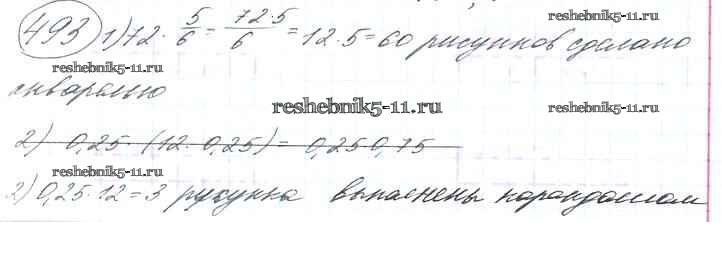 493 1) 72 · 5/6 = 72·5/6 = 12·5 = 60 рисунков сделано
reshebnik5-11.ru
reshebnik5-11.ru
акварелью
reshebnik5-11.ru
reshebnik5-11.ru
2) 0,25 · (12 · 0,25) = 0,25 0,75
reshebnik5-11.ru
2) 0,25·12 = 3 рисунка выполнены карандашом